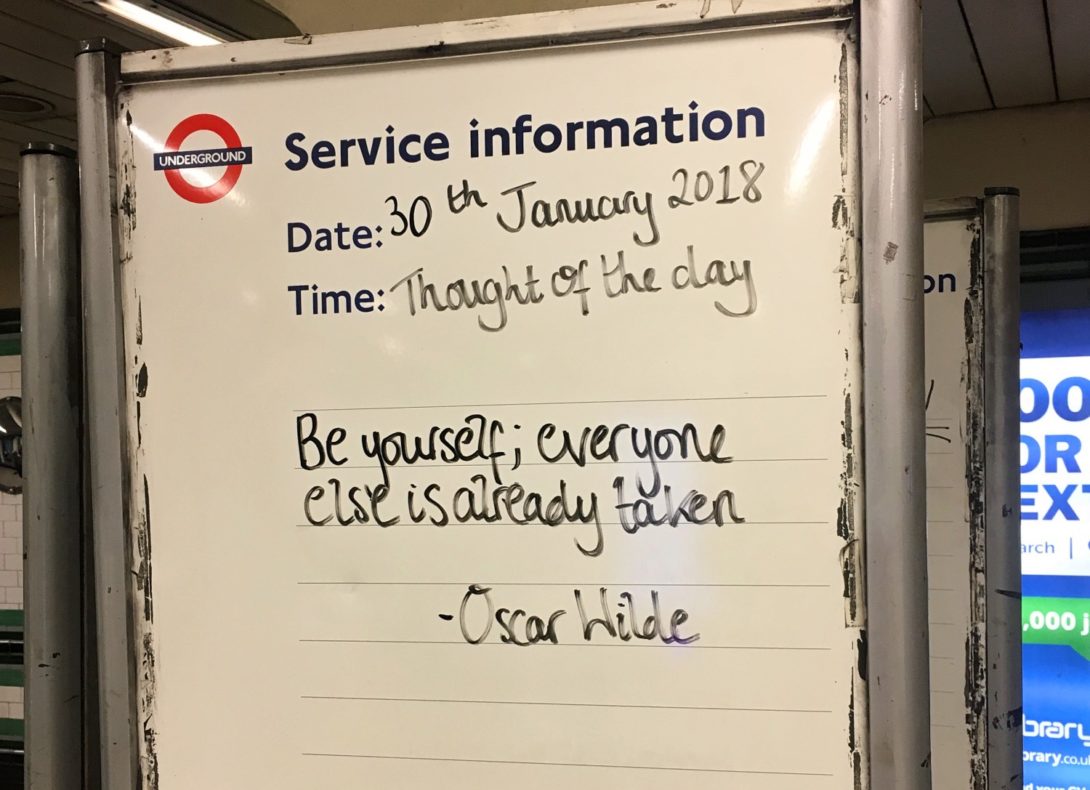 UNDERGROUND
Service information
Date: 30th January 2018
Time: Thought of the day
Be yourself; everyone
else is already taken
-Oscar Wilde
on
OO
OR
EXT
arch |
,000 j
brary
brary.co.uk